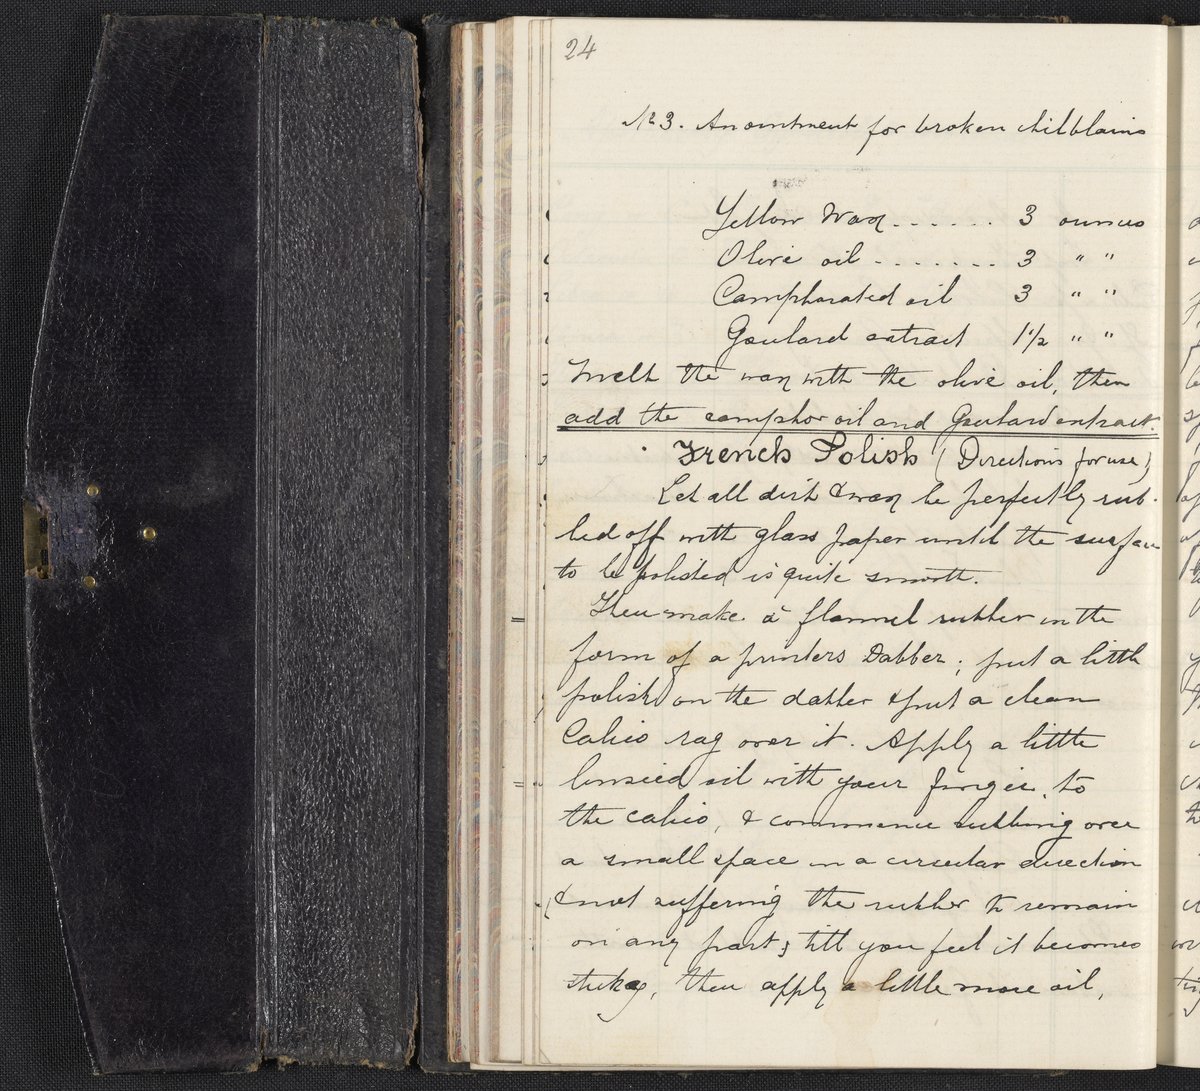 24
No 3. An ointment for broken chilblains
Yellow Wax ...... 3 ounces
Olive oil ........ 3 " "
Camphorated oil 3 " "
Goulard extract 1 1/2 " "
Melt the wax with the olive oil, then
add the camphor oil and Goulard extract.
French Polish (Directions for use)
Let all dirt & wax be perfectly rub-
bed off with glass paper until the surface
to be polished is quite smooth.
Then make a flannel rubber in the
form of a printers Dabber; put a little
polish on the dabber & put a clean
Calico rag over it. Apply a little
linseed oil with your finger, to
the calico, & commence rubbing over
a small space in a circular direction
& not suffering the rubber to remain
on any part; till you feel it becomes
sticky, then apply a little more oil,